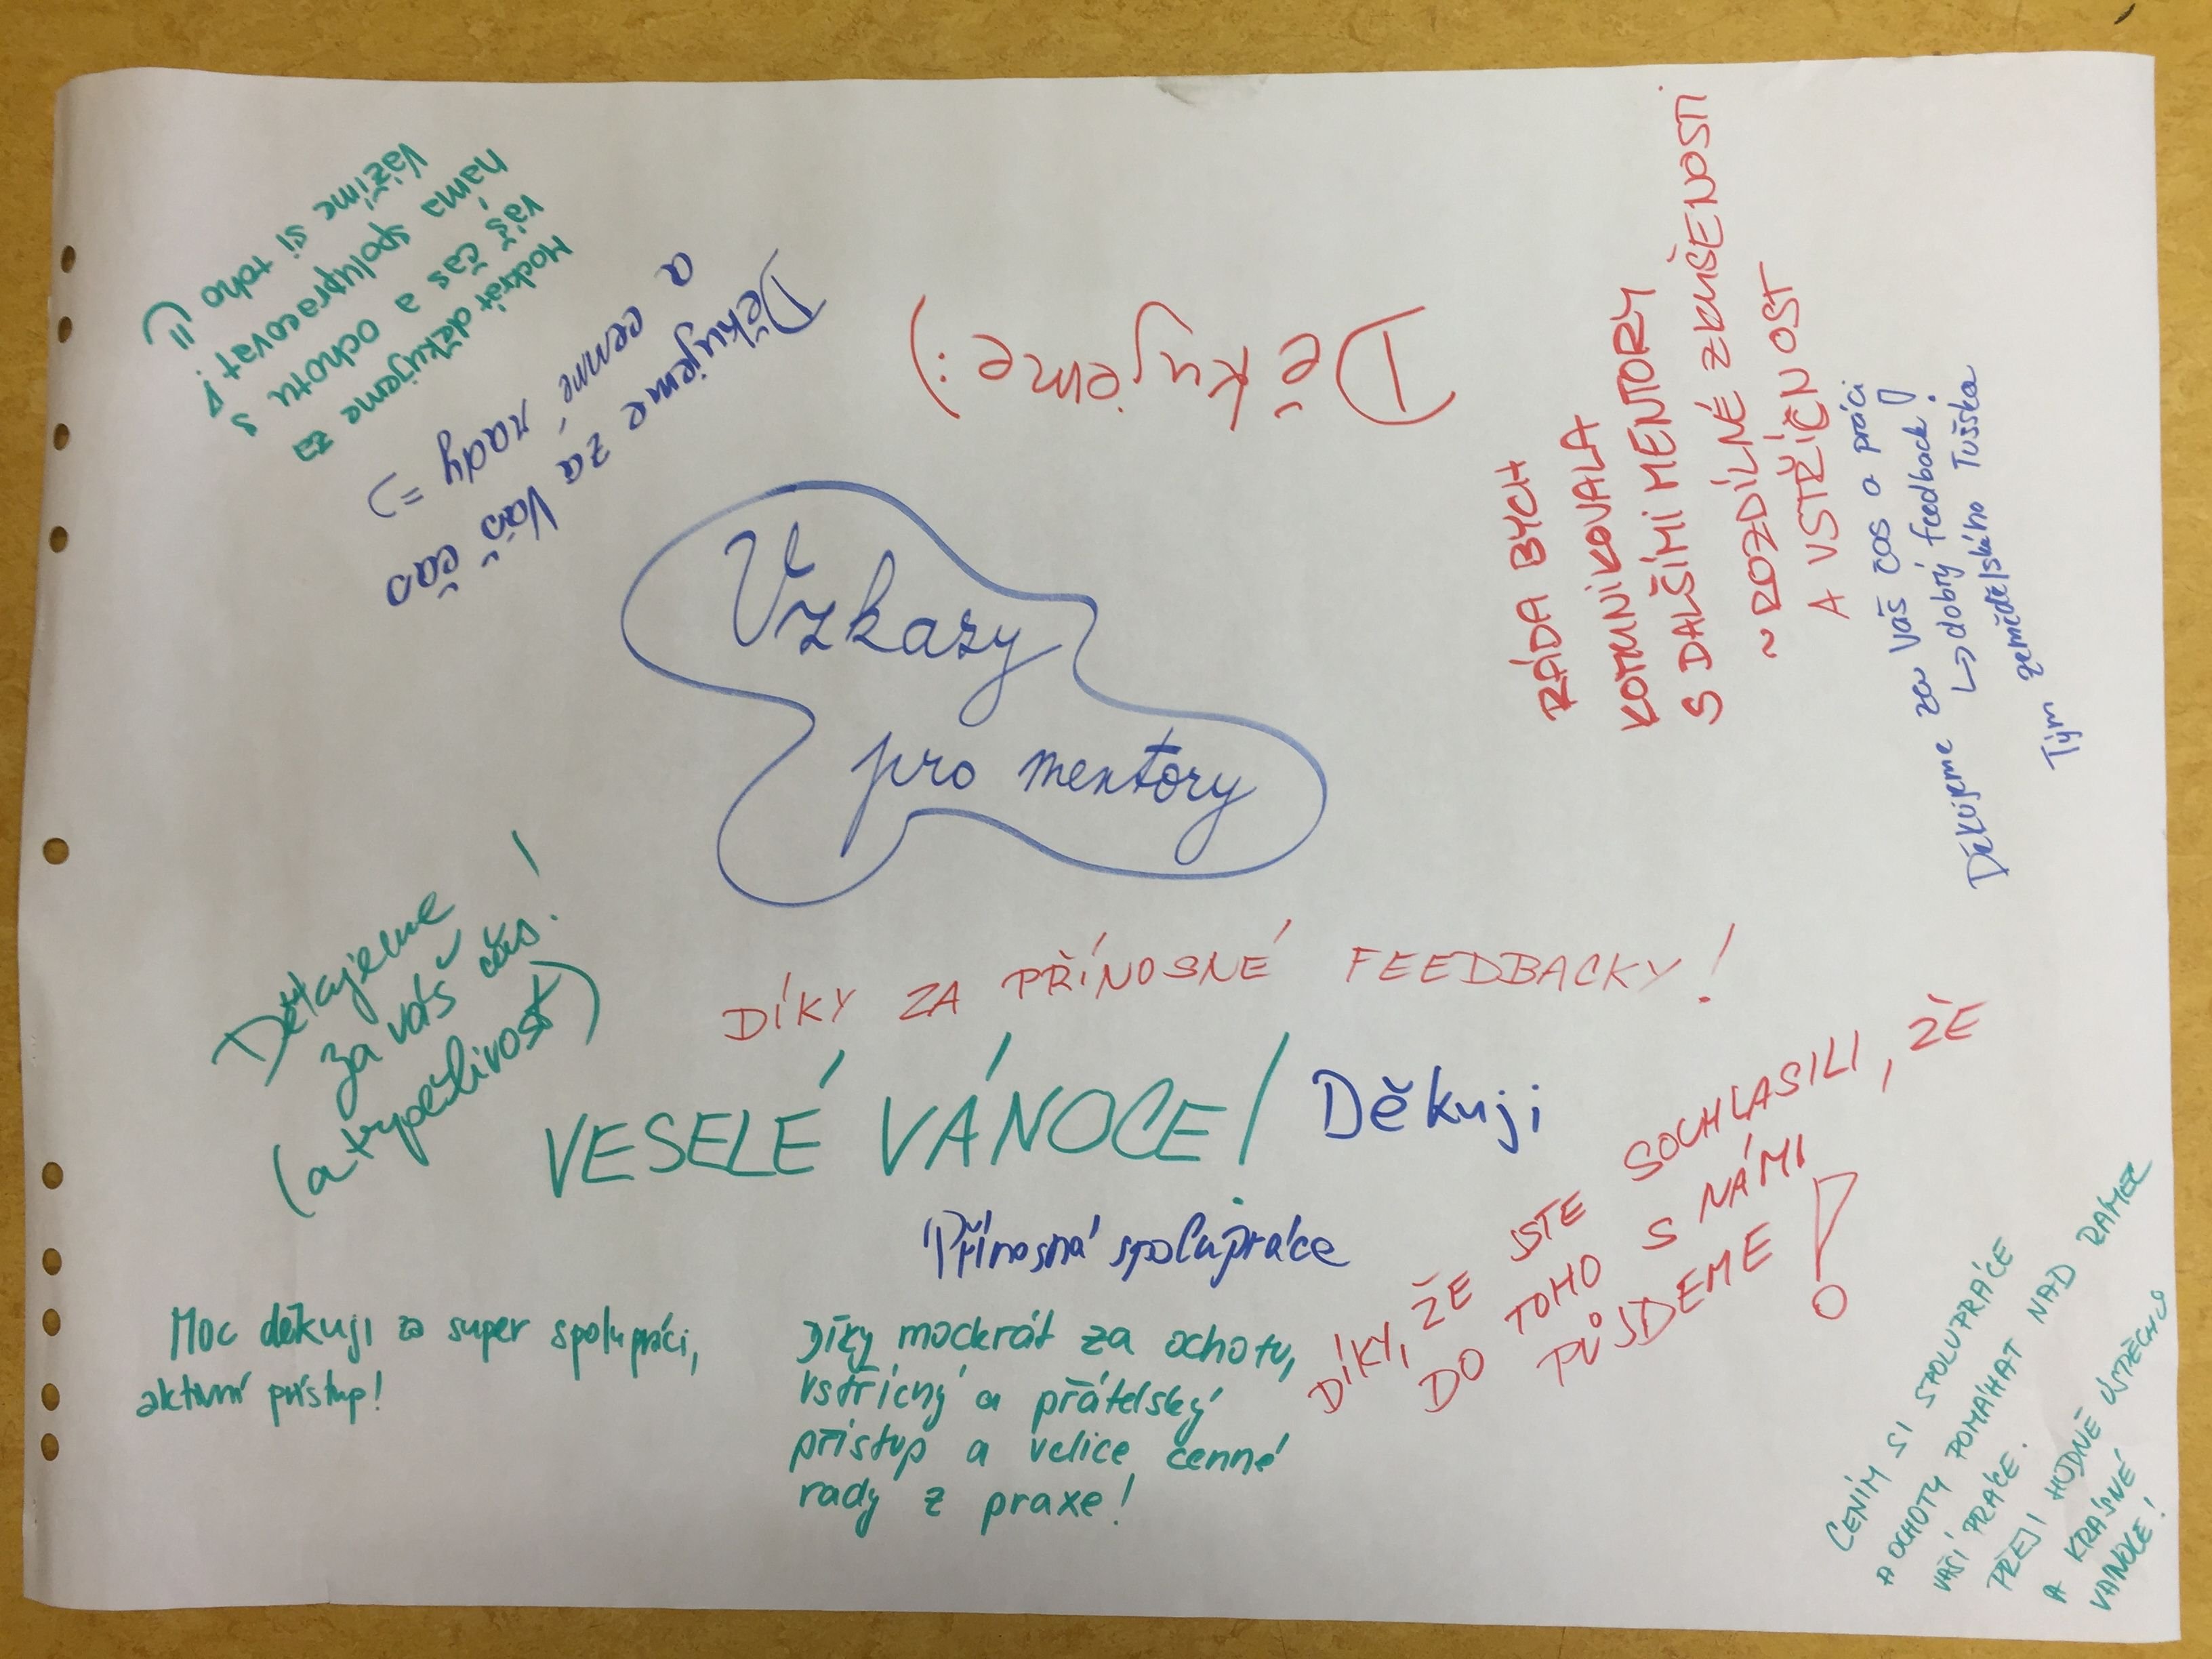 Vzkazy
pro mentory
Mockrát děkujeme za
váš čas a ochotu s
náma spolupracovat!
Vážíme si toho =)
Děkujeme za Váš čas
a cenné rady =)
Děkujeme :)
RÁDA BYCH
KOMUNIKOVALA
S DALŠÍMI MENTORY
~ ROZDÍLNÉ ZKUŠENOSTI
A VSTŘÍČNOST
Děkujeme za Váš čas a práci
↳ dobrý feedback!
Tým zemědělského Tuška
Děkujeme
za váš čas!
(a trpělivost)
DÍKY ZA PŘÍNOSNÉ FEEDBACKY!
VESELÉ VÁNOCE!
Děkuji
Přínosná spolupráce
DÍKY, ŽE JSTE SOUHLASILI, ŽE
DO TOHO S NÁMI
PŮJDEME!
Moc děkuji za super spolupráci,
aktivní přístup!
Díky mockrát za ochotu,
vstřícný a přátelský
přístup a velice cenné
rady z praxe!
CENÍM SI SPOLUPRÁCE
A OCHOTY POMÁHAT NAD RÁMEC
VAŠÍ PRÁCE.
PŘEJI HODNĚ ÚSPĚCHU
A KRÁSNÉ
VÁNOCE!